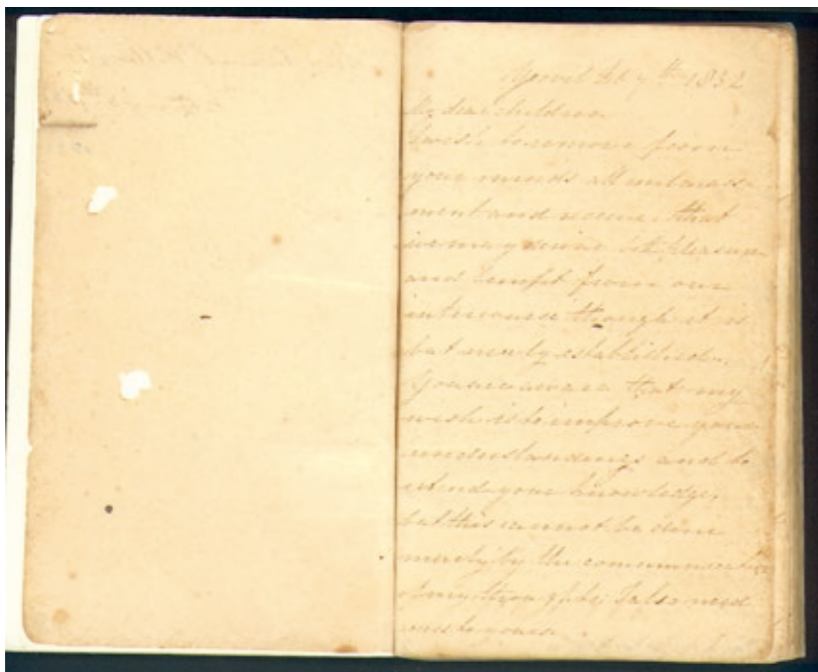 Yeovil Feb 7th 1832
My dear children
I wish to remove from
your minds all embarrass-
ment and reserve, that
we may derive both pleasure
and benefit from our
intercourse though it is
but newly established.
You are aware that my
wish is to improve your
understandings and to
extend your knowledge,
but this cannot be done
merely by the communication
of my thoughts; I also need
to yours.